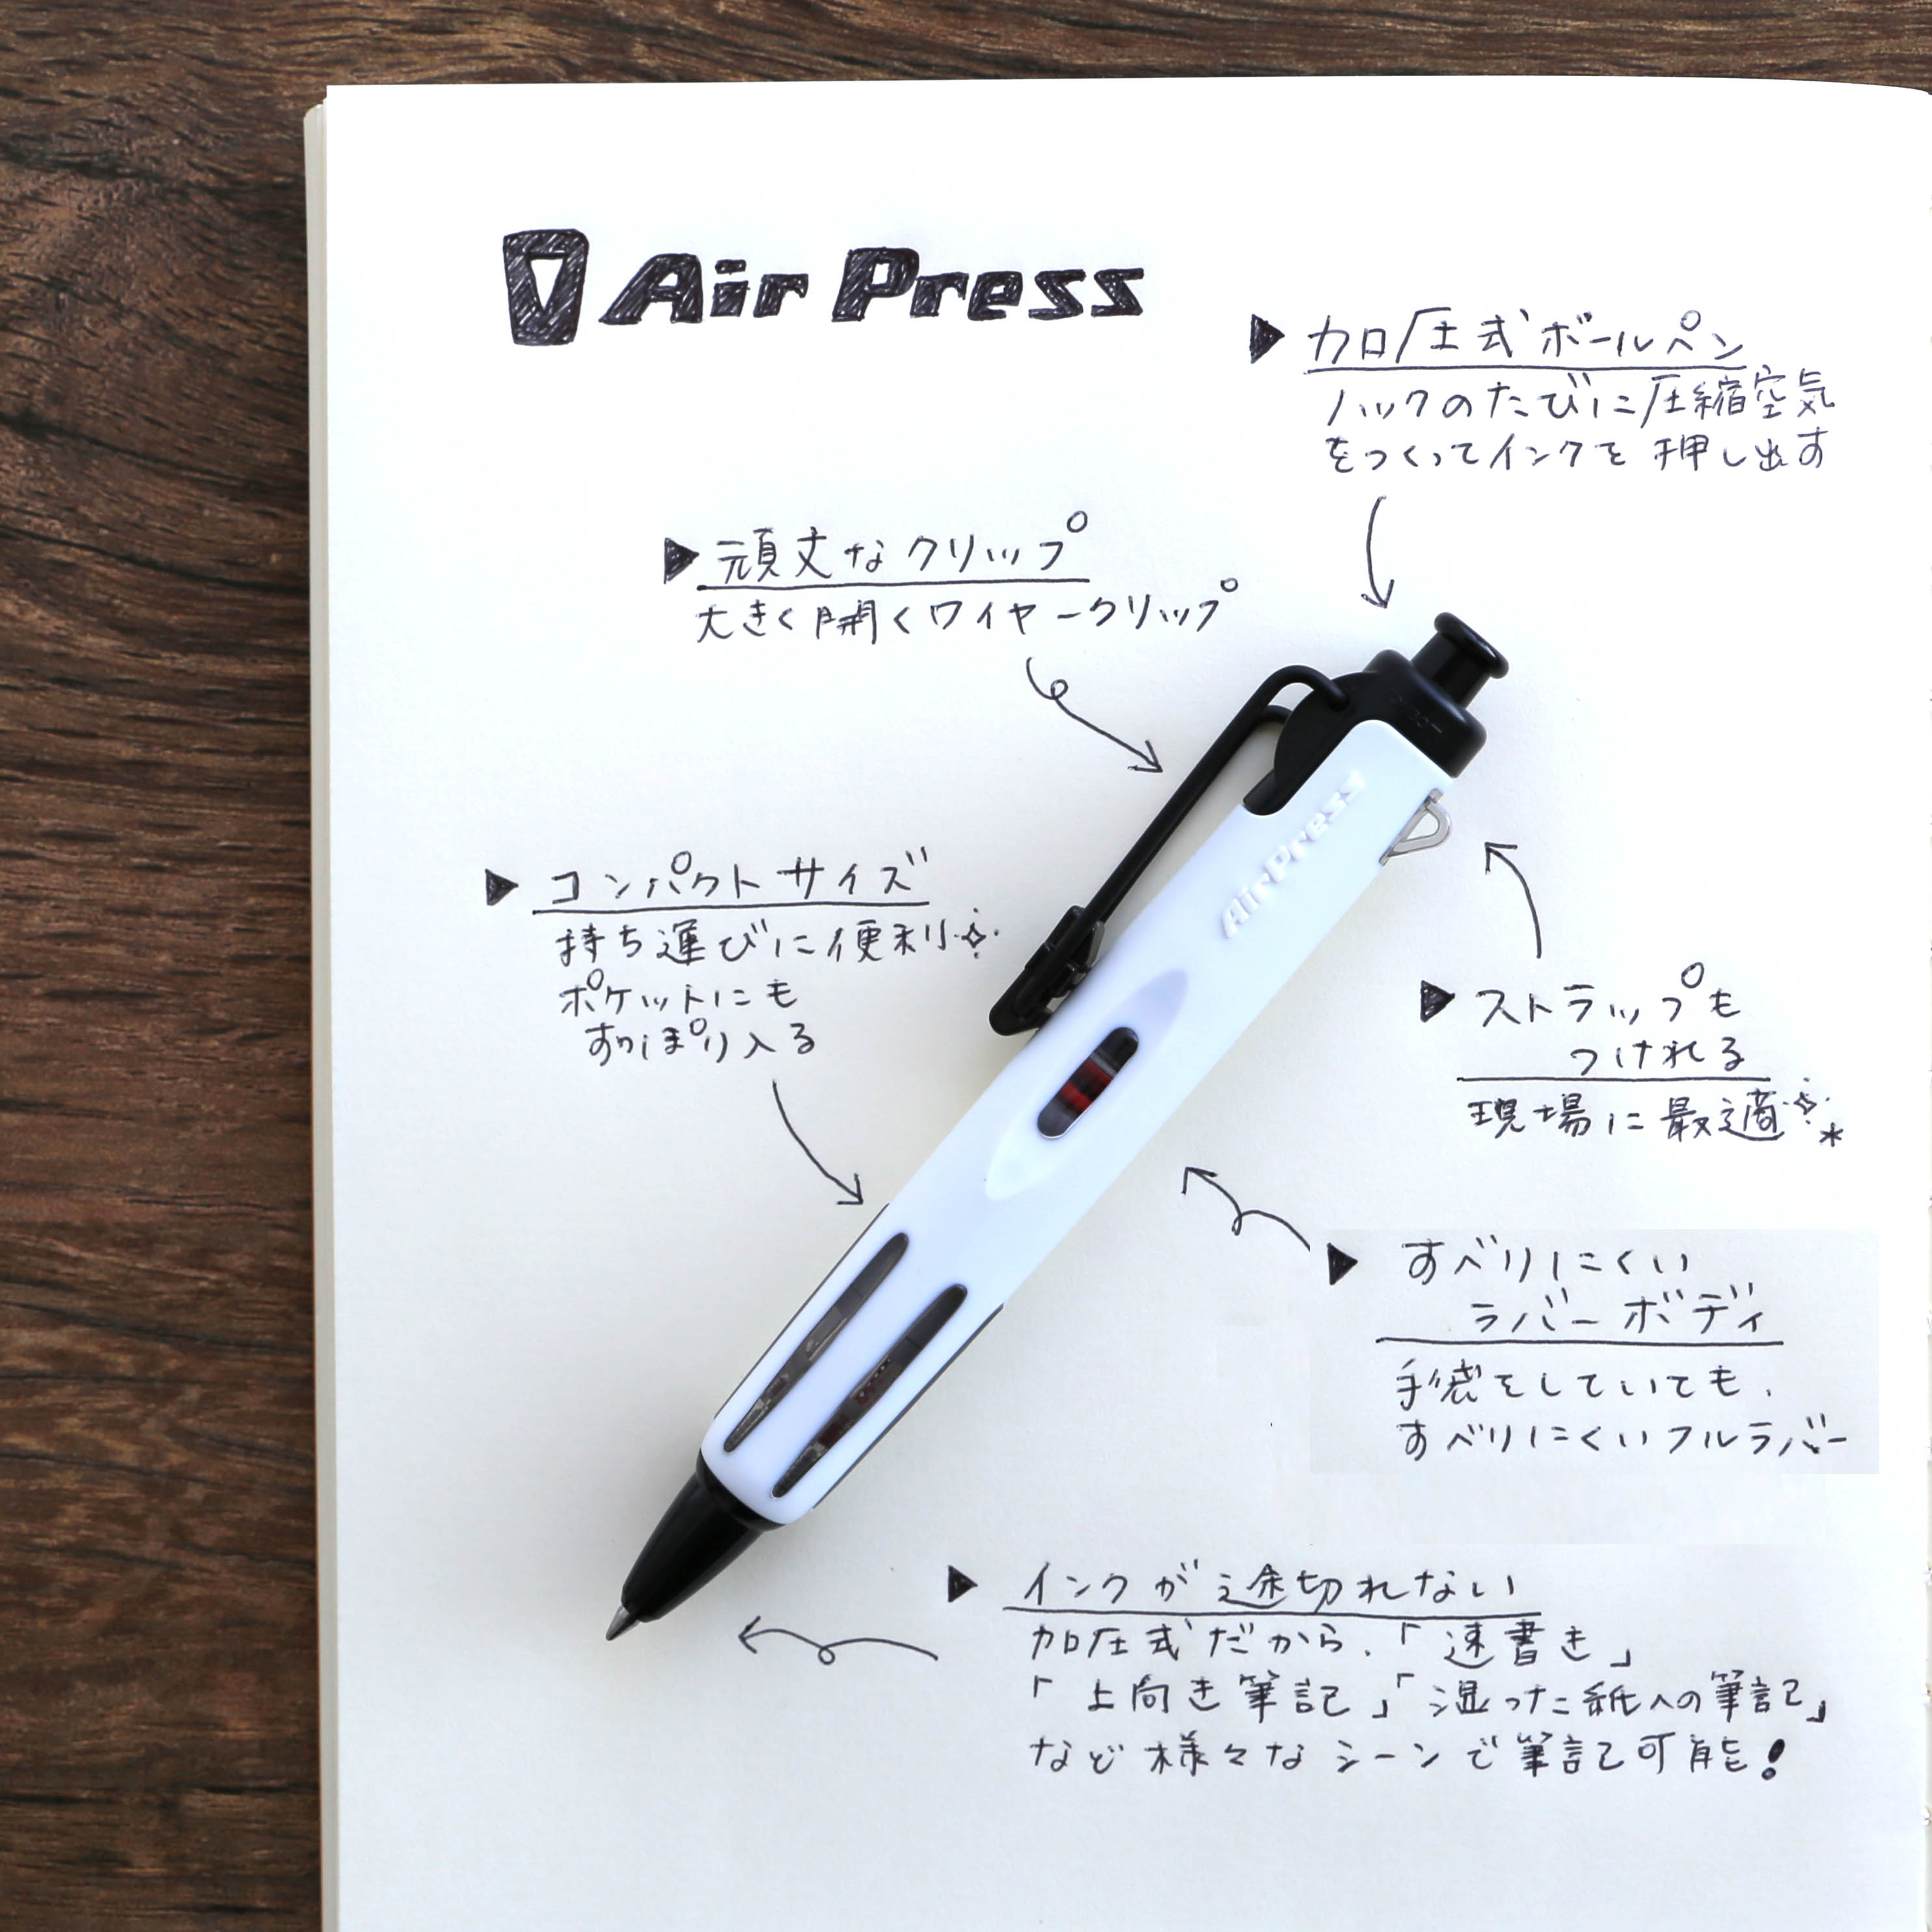 Air Press
▶加圧式ボールペン
ノックのたびに圧縮空気
をつくってインクを押し出す
▶頑丈なクリップ
大きく開くワイヤークリップ
AirPress
▶コンパクトサイズ
持ち運びに便利
ポケットにも
すっぽり入る
▶ストラップも
つけれる
現場に最適
▶すべりにくい
ラバーボディ
手袋をしていても、
すべりにくいフルラバー
▶インクが途切れない
加圧式だから、「速書き」
「上向き筆記」「湿った紙への筆記」
など様々なシーンで筆記可能!